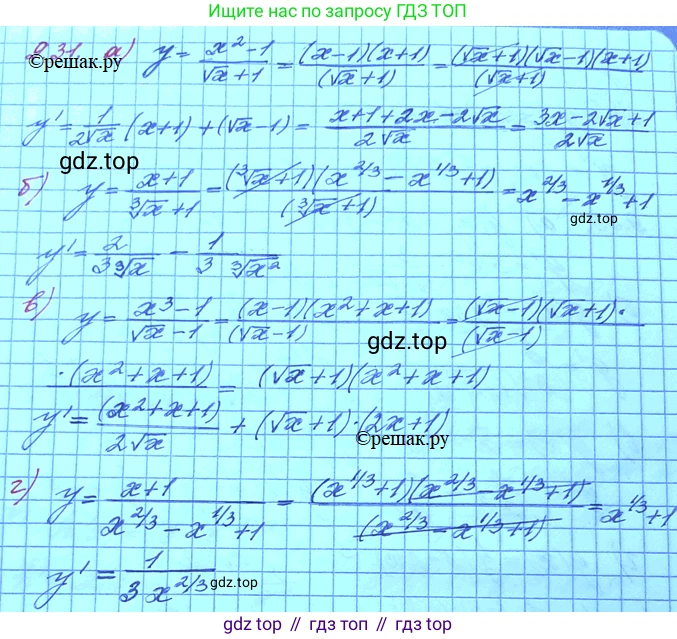 Ищите ответы по запросу ГДЗ ТОП
931 а) y = (x² − 1)/(√x + 1) = (x−1)(x+1)/(√x+1) = (√x+1)(√x−1)(x+1)/(√x+1)
©решак.ру
y' = 1/(2√x) (x+1) + (√x−1) = (x+1+2x−2√x)/(2√x) = (3x−2√x+1)/(2√x)
gdz.top
б) y = (x+1)/(∛x+1) = (∛x+1)(x^(2/3) − x^(1/3) + 1)/(∛x+1) = x^(2/3) − x^(1/3) + 1
gdz.top
y' = 2/(3∛x) − 1/(3 ∛x²)
в) y = (x³−1)/(√x−1) = (x−1)(x²+x+1)/(√x−1) = (√x−1)(√x+1)·/(√x−1)
gdz.top
·(x²+x+1) = (√x+1)(x²+x+1)
y' = (x²+x+1)/(2√x) + (√x+1)·(2x+1)
©решак.ру
г) y = (x+1)/(x^(2/3) − x^(1/3) + 1) = (x^(1/3)+1)(x^(2/3) − x^(1/3) + 1)/(x^(2/3) − x^(1/3) + 1) = x^(1/3) + 1
y' = 1/(3x^(2/3))
gdz.top
gdz.top // гдз топ // gdz top